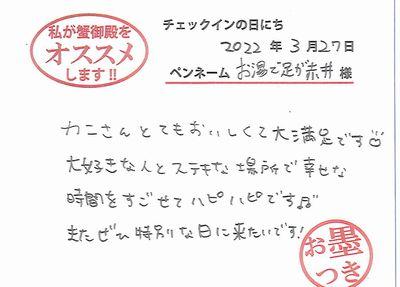 私が蟹御殿を
オススメ
します!!
チェックインの日にち
2022年3月27日
ペンネーム お湯で足が赤井 様
カニさんとてもおいしくて大満足です
大好きな人とステキな場所で幸せな
時間をすごせてハピハピです♬
またぜひ特別な日に来たいです!
お墨
つき